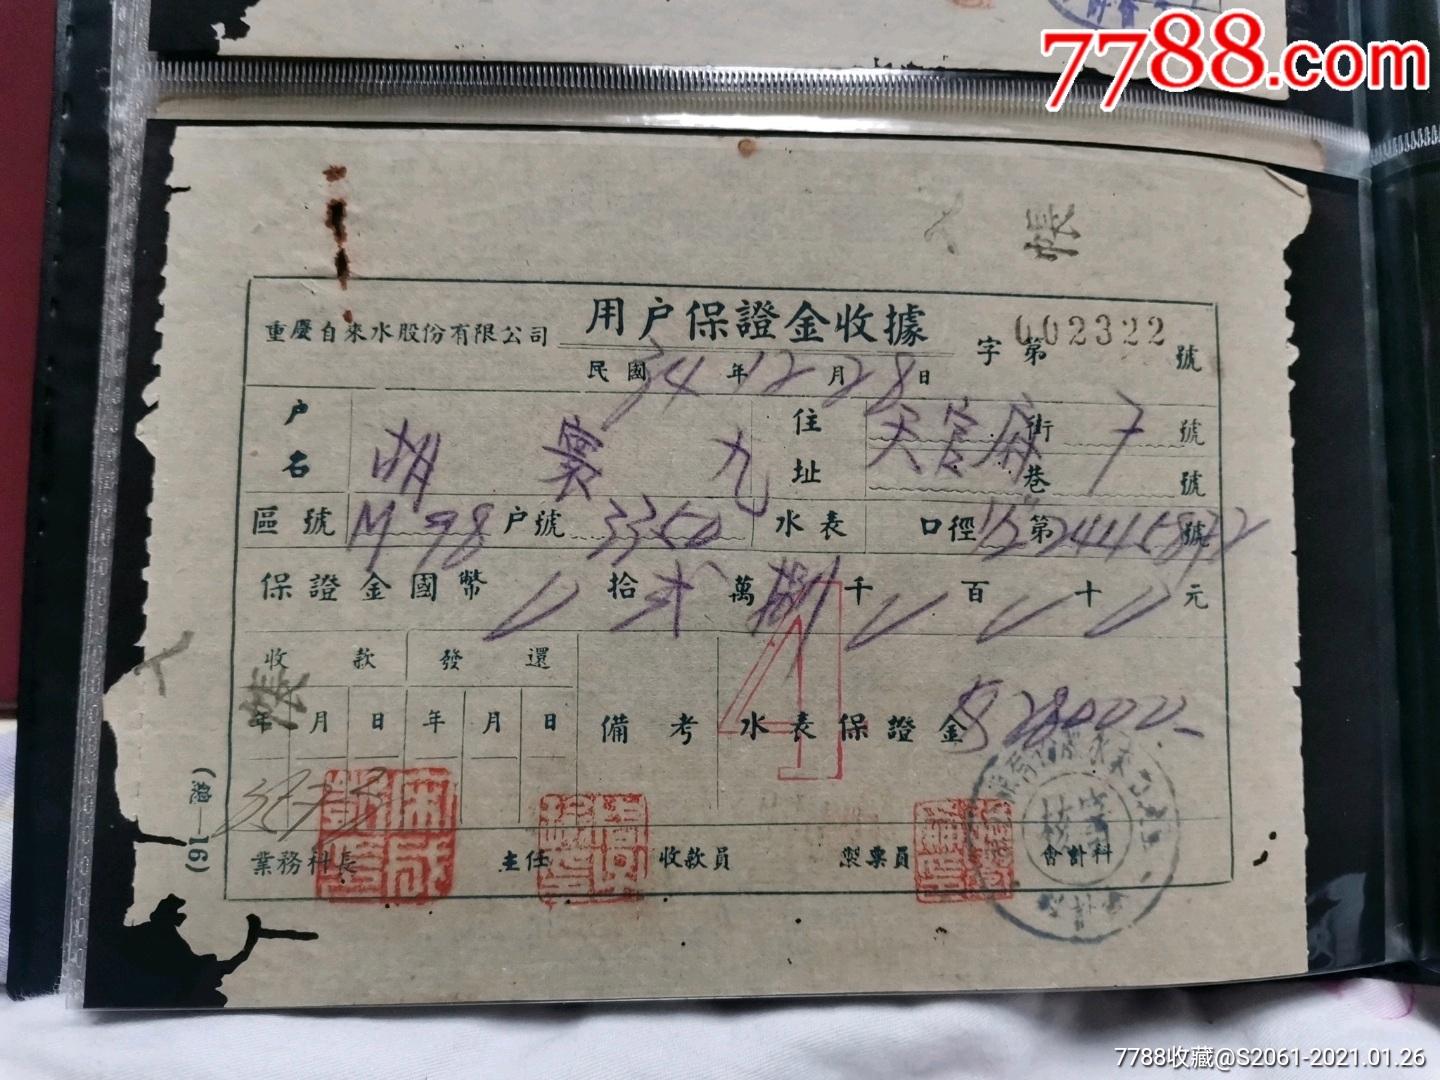 7788.com
帳
重慶自來水股份有限公司 用户保證金收據 字第002322號
民國34年12月28日
户名 胡 九 住址 天官府街巷 7 號號
區號 M 98 户號 3350 水表 口徑1/2" 第 號
保證金國幣 拾弍萬捌千 百 十 元
收款 發還
帳
年 月 日 年 月 日 備考 水表保證金 $28000-
41
業務科長 主任 收款員 製票員
會計科
(總—16)
7788收藏@S2061-2021.01.26